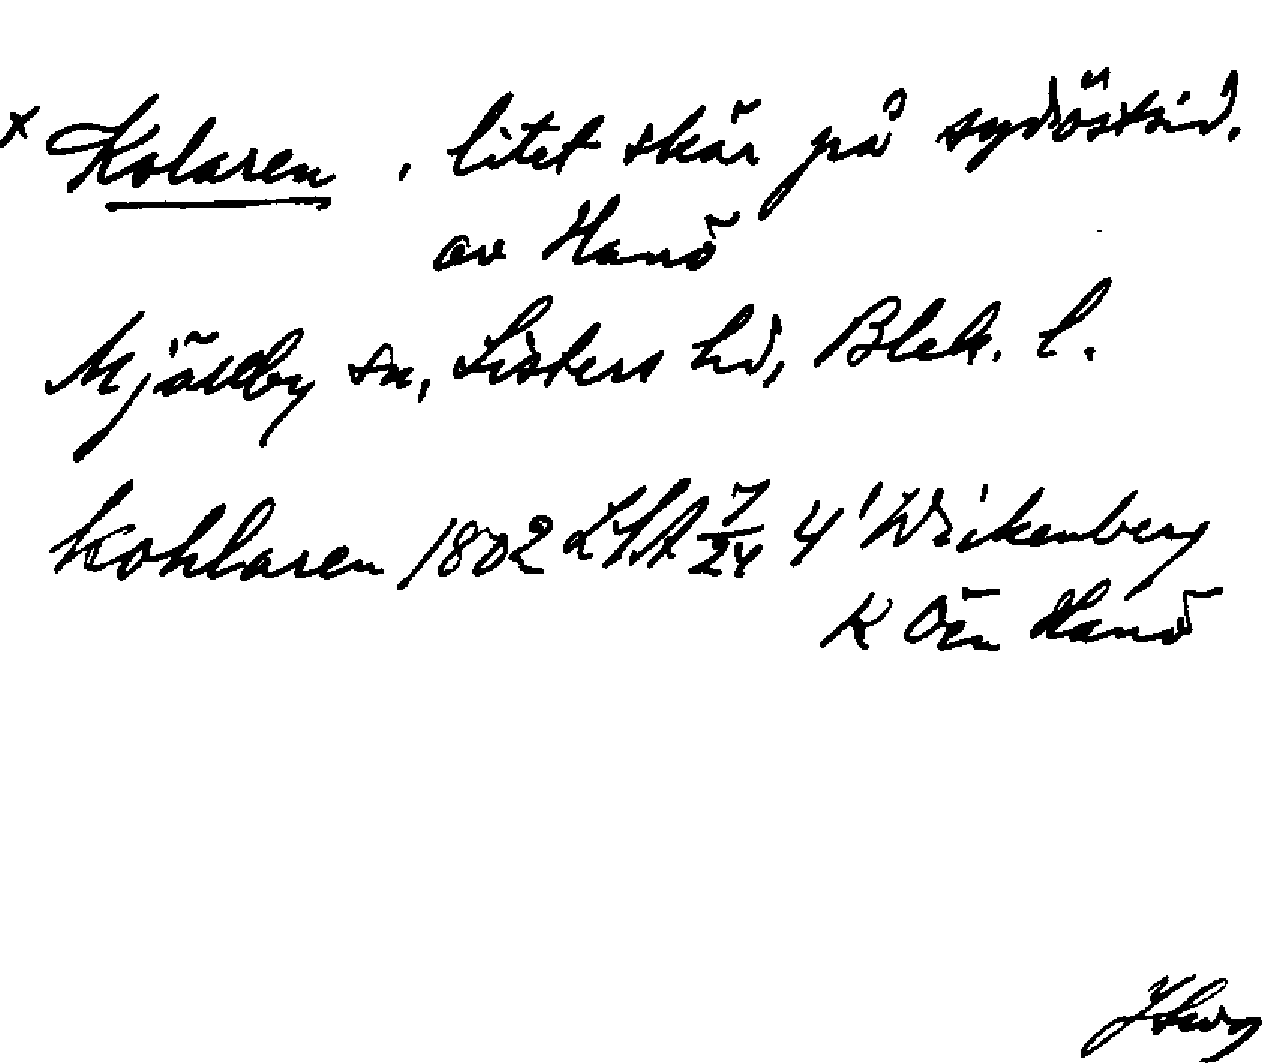 x Kolaren, litet skär på sydöstsid.
av Hanö
Mjällby sn, Listers hd, Blek. l.
Kohlaren 1802 LSA 7/24 4' Wickenberg
K Öen Hanö